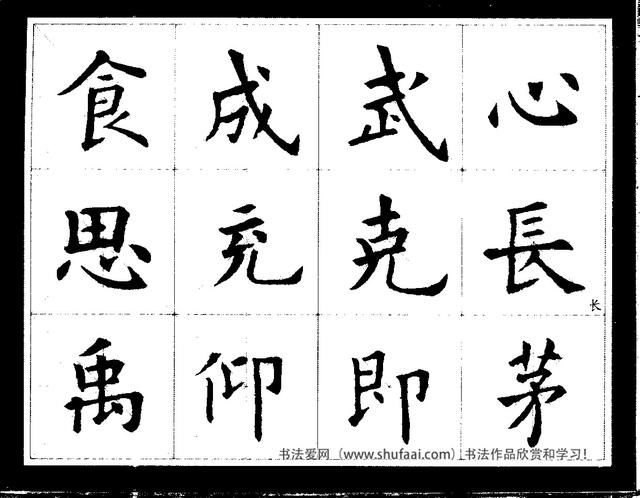 心長长茅
武克即
成充仰
食思禹
书法爱网（www.shufaai.com）书法作品欣赏和学习！